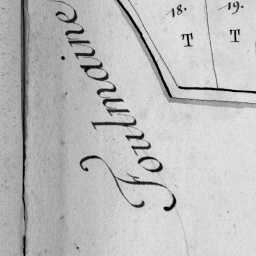 18.
19.
T
T
Foulmaine